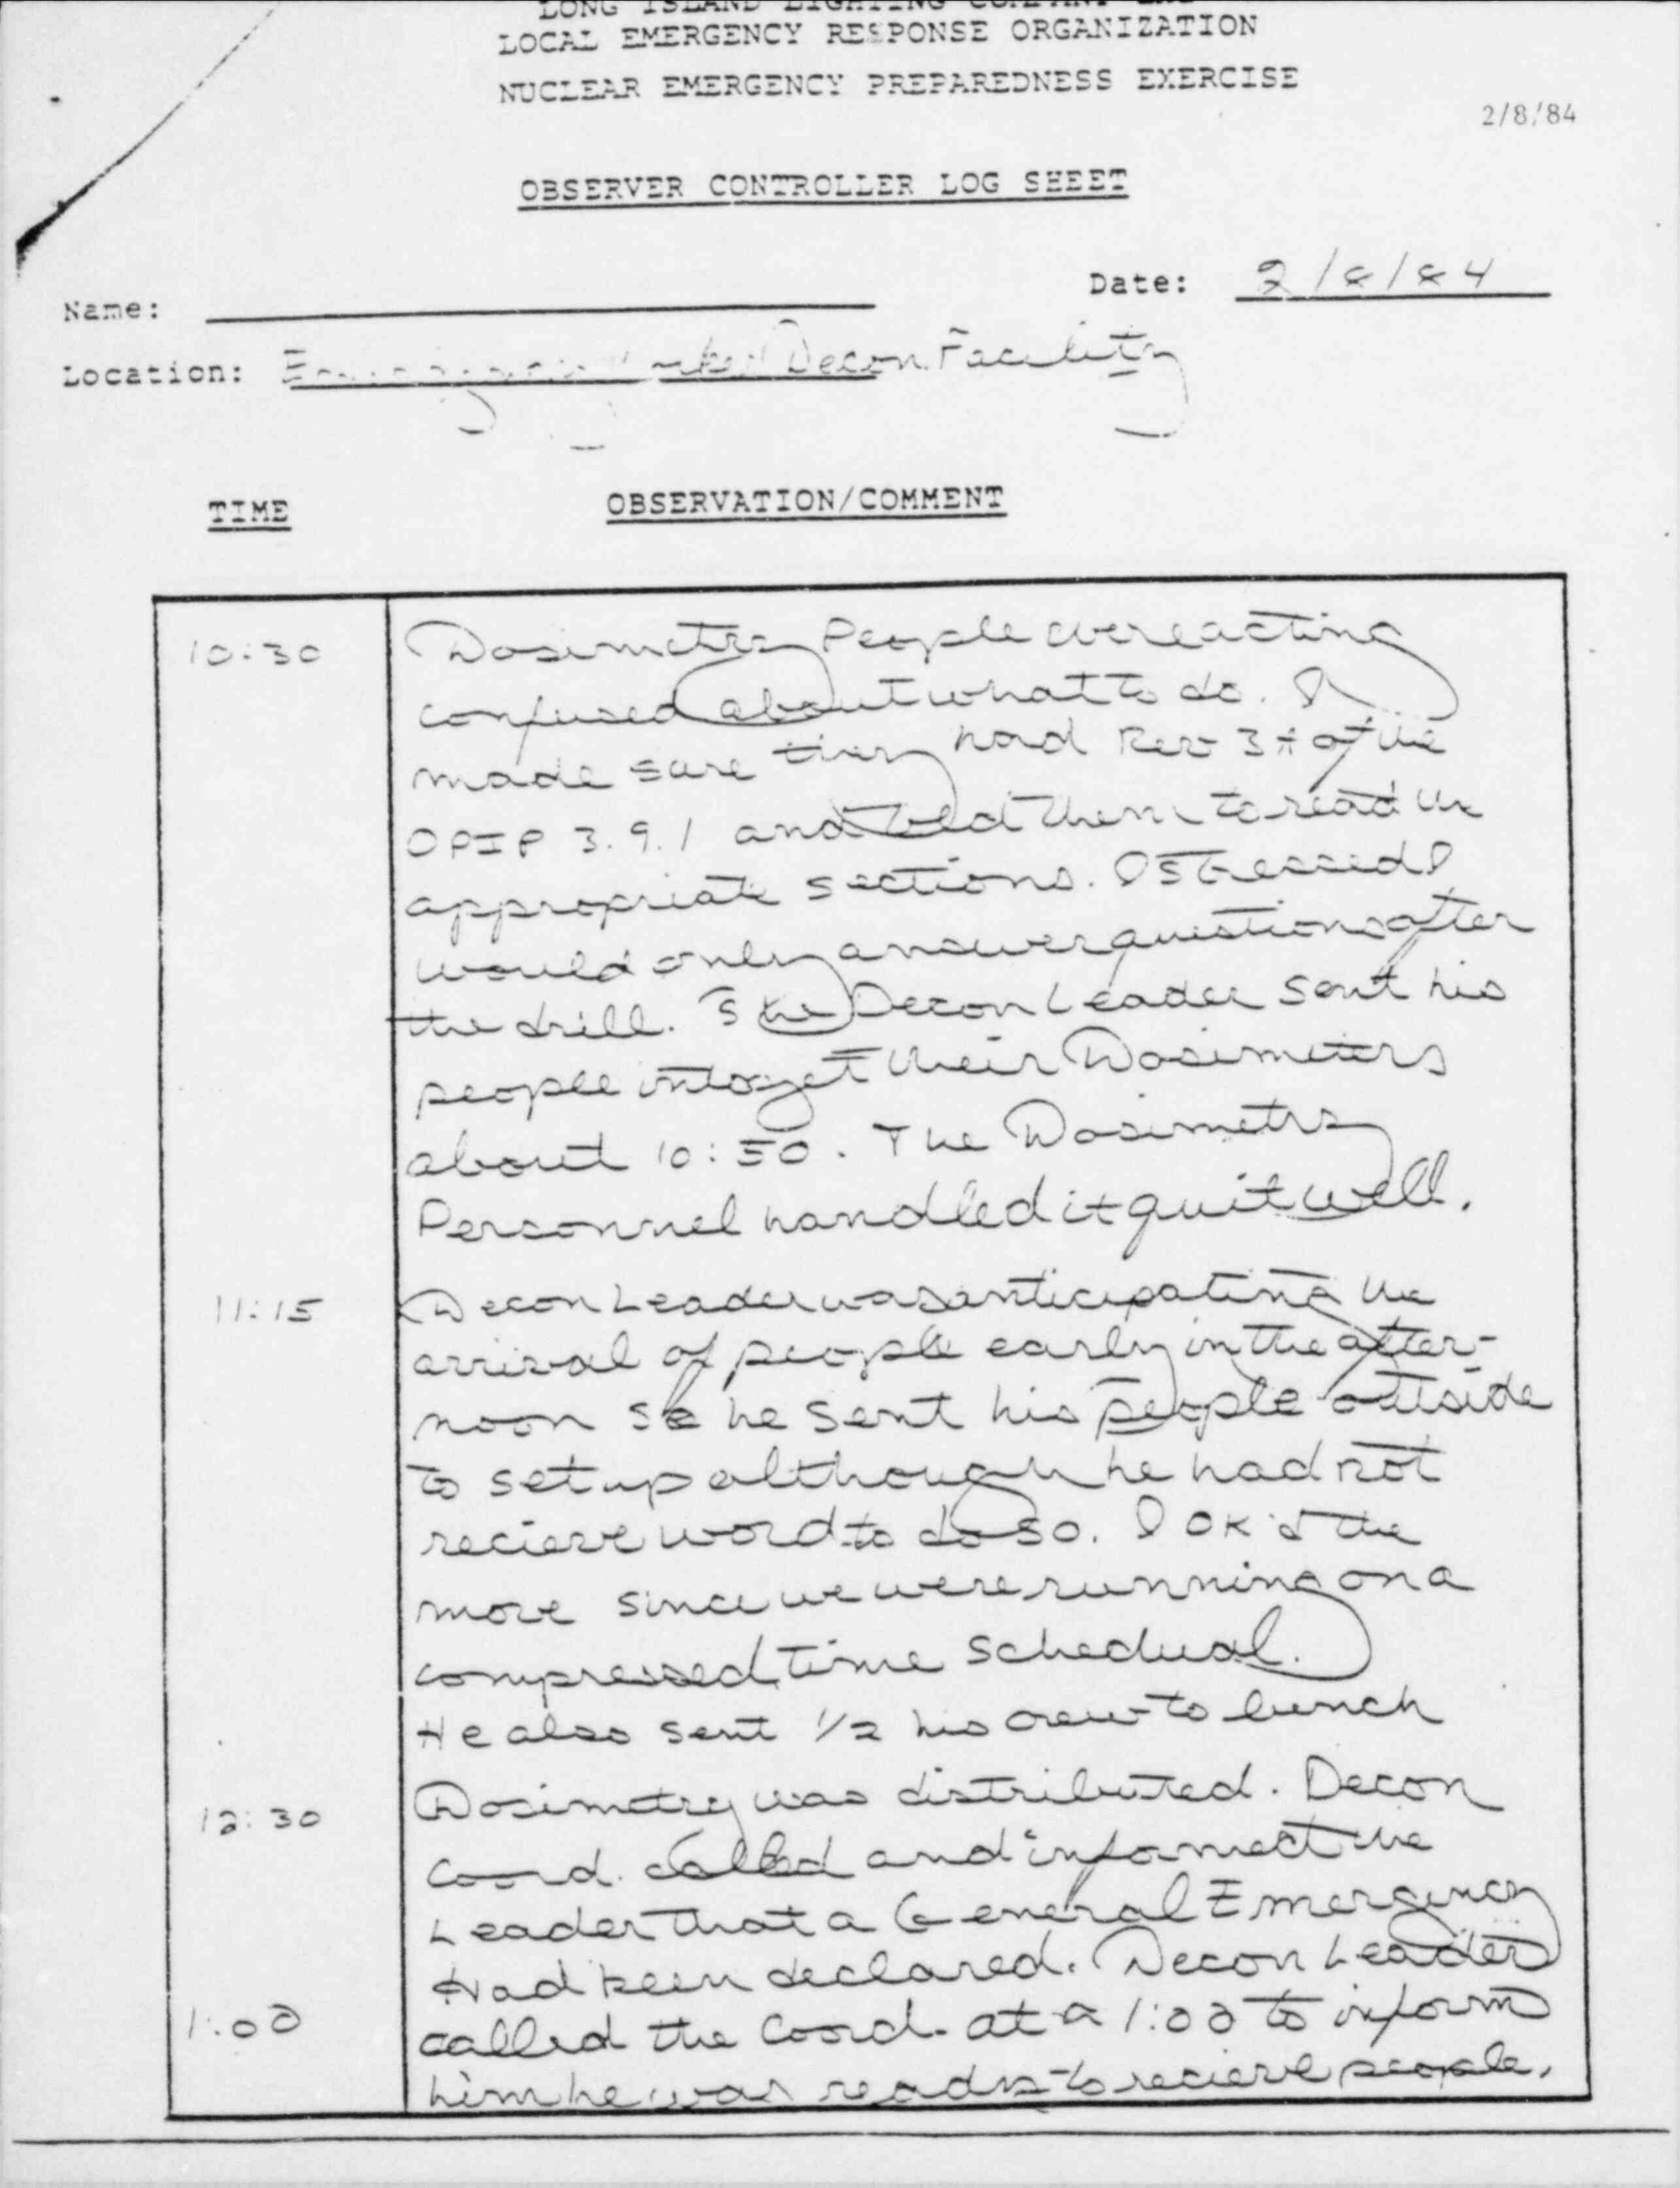 LONG ISLAND LIGHTING COMPANY
LOCAL EMERGENCY RESPONSE ORGANIZATION
NUCLEAR EMERGENCY PREPAREDNESS EXERCISE
2/8/84
OBSERVER CONTROLLER LOG SHEET
Date: 2/8/84
Name:
Location: Decon. Facility
TIME OBSERVATION/COMMENT
10:30 Dosimetry People were acting
confused about what to do. I
made sure they had Rev 3 of the
OPIP 3.9.1 and told them to read the
appropriate sections. I stressed I
would only answer questions after
the drill. The Decon Leader sent his
people in to get their Dosimeters
about 10:50. The Dosimetry
Personnel handled it quit well.
11:15 Decon Leader was anticipating the
arrival of people early in the after-
noon so he sent his people outside
to set up although he had not
recieve word to do so. I OK'd the
move since we were running on a
compressed time schedual.
He also sent 1/2 his crew to lunch
12:30 Dosimetry was distributed. Decon
Coord. called and informed the
Leader that a General Emergency
Had been declared. Decon Leader
1:00 called the Coord. at a 1:00 to inform
him he was ready to recieve people.